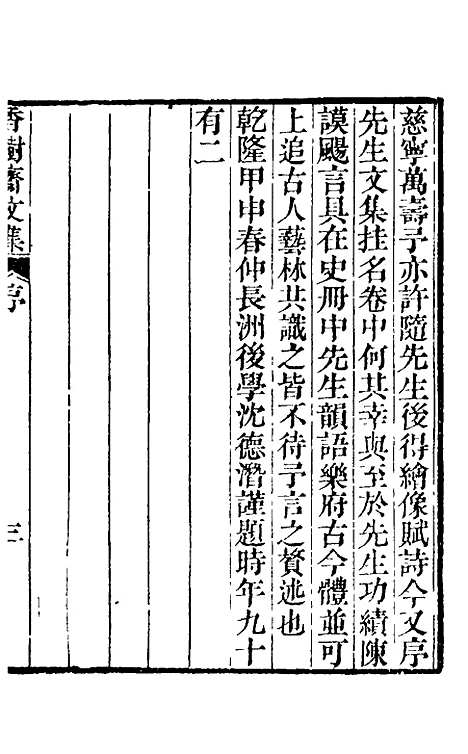 慈寧萬壽予亦許隨先生後得繪像賦詩今又序
先生文集挂名卷中何其幸與至於先生功績陳
謨颺言具在史冊中先生韻語樂府古今體並可
上追古人藝林共識之皆不待予言之贅述也
乾隆甲申春仲長洲後學沈德潛謹題時年九十
有二
香樹齋文集 序 三